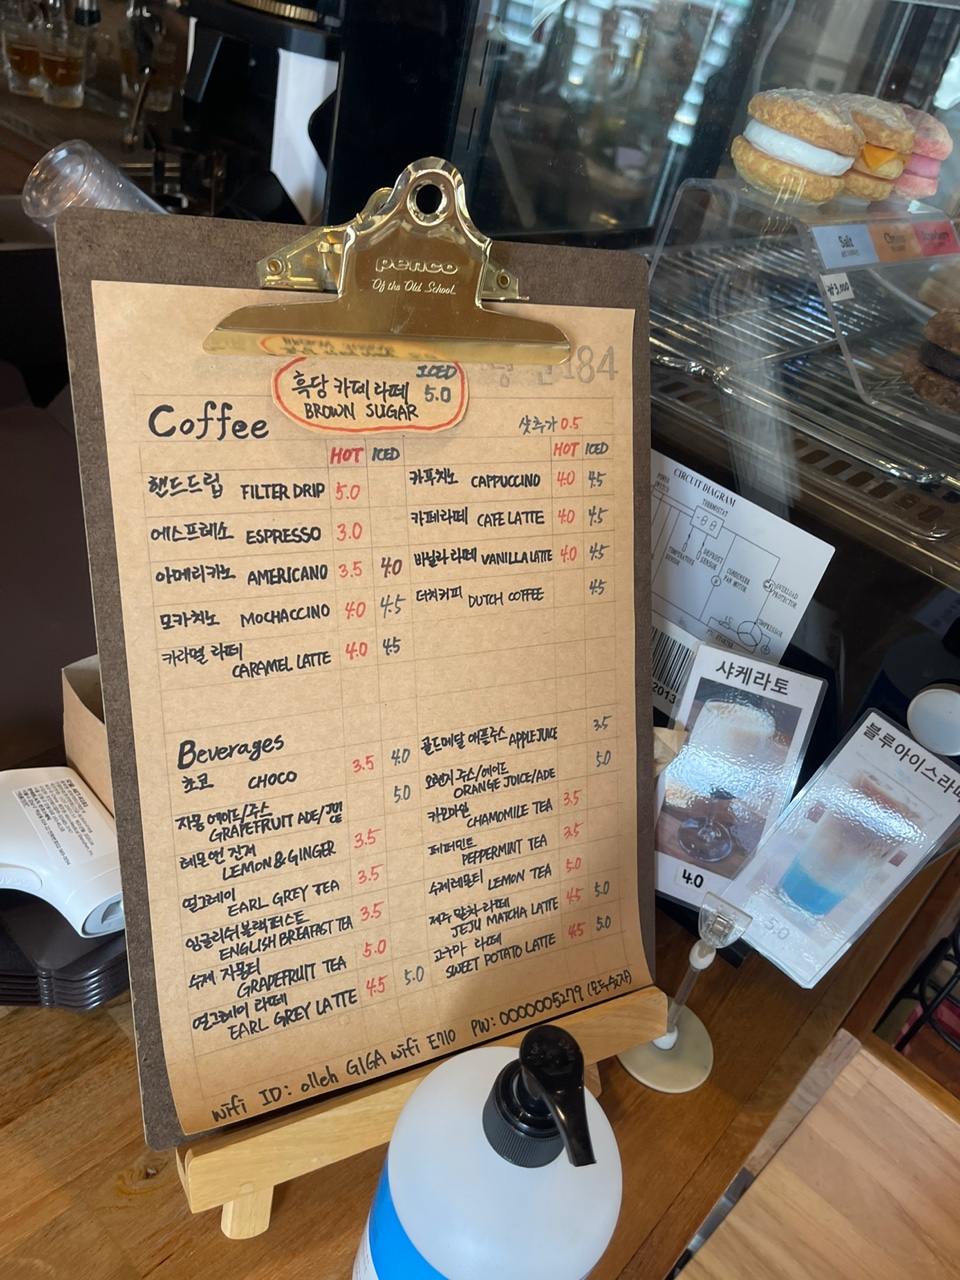 penco
Of the Old School
184
ICED
흑당 카페라떼 5.0
BROWN SUGAR
Coffee
샷추가 0.5
HOT ICED
핸드드립 FILTER DRIP 5.0
에스프레소 ESPRESSO 3.0
아메리카노 AMERICANO 3.5 4.0
모카치노 MOCHACCINO 4.0 4.5
카라멜 라떼 CARAMEL LATTE 4.0 4.5
HOT ICED
카푸치노 CAPPUCCINO 4.0 4.5
카페라떼 CAFE LATTE 4.0 4.5
바닐라라떼 VANILLA LATTE 4.0 4.5
더치커피 DUTCH COFFEE 4.5
Beverages
초코 CHOCO 3.5 4.0
자몽에이드/주스 5.0
GRAPEFRUIT ADE/
레몬앤진저 LEMON & GINGER 3.5
얼그레이 EARL GREY TEA 3.5
잉글리쉬블랙퍼스트 ENGLISH BREAKFAST TEA 3.5
수제 자몽티 GRAPEFRUIT TEA 5.0
얼그레이 라떼 EARL GREY LATTE 4.5 5.0
골드메달 애플주스 APPLE JUICE 3.5
오렌지주스/에이드 ORANGE JUICE/ADE 5.0
카모마일 CHAMOMILE TEA 3.5
페퍼민트 PEPPERMINT TEA 3.5
수제레몬티 LEMON TEA 5.0
제주말차라떼 JEJU MATCHA LATTE 4.5 5.0
고구마 라떼 SWEET POTATO LATTE 4.5 5.0
wifi ID: olleh GIGA wifi E710 PW: 0000005279 (모두숫자)
Salt
₩3,000
CIRCUIT DIAGRAM
THERMOSTAT
TEMPERATURE SENSOR
DEFROST SENSOR
CONDENSER FAN MOTOR
OVERLOAD PROTECTOR
COMPRESSOR
2013
샤케라또
4.0
블루아이스라떼
5.0